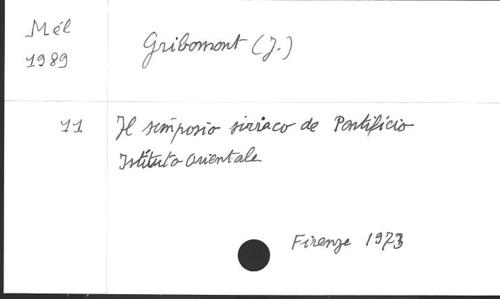 Mél
1989
Gribomont (J.)
11
Il simposio siriaco de Pontificio
Istituto orientale
Firenze 1973